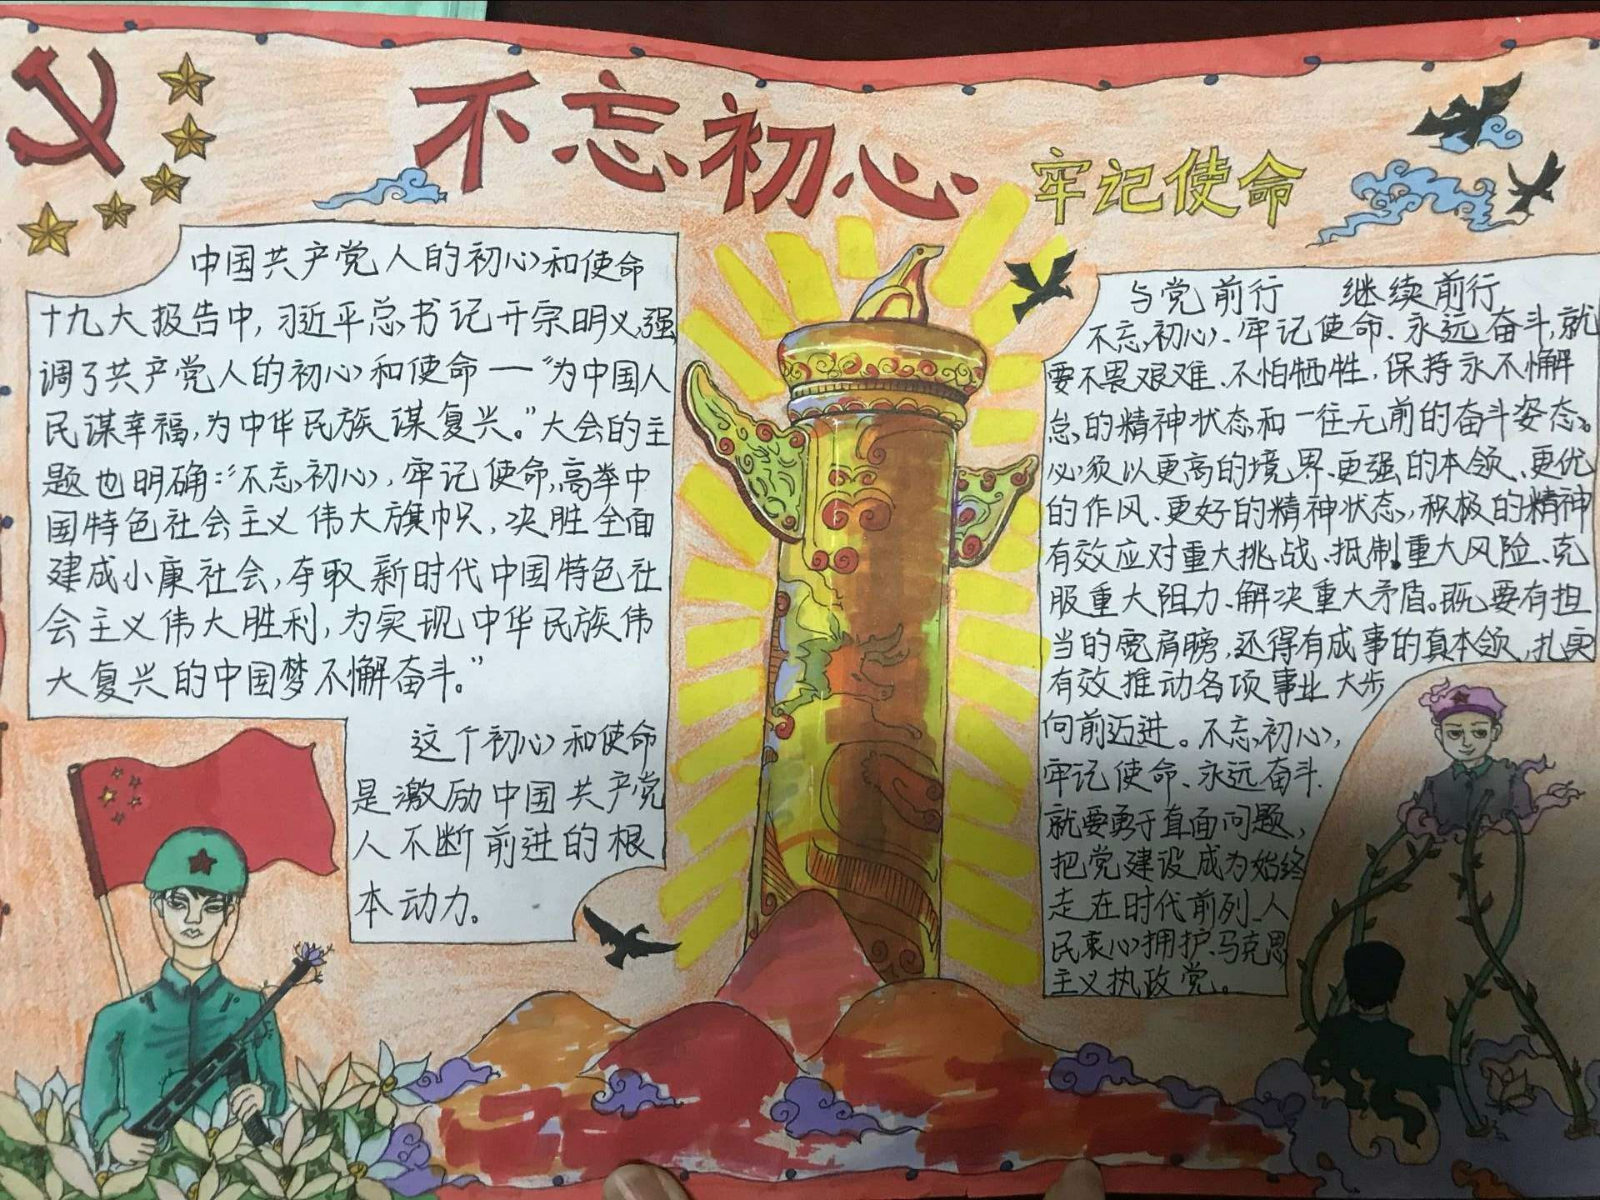 不忘初心
牢记使命
中国共产党人的初心和使命
十九大报告中,习近平总书记开宗明义,强
调了共产党人的初心和使命一“为中国人
民谋幸福,为中华民族谋复兴。”大会的主
题也明确:“不忘初心,牢记使命,高举中
国特色社会主义伟大旗帜,决胜全面
建成小康社会,夺取新时代中国特色社
会主义伟大胜利,为实现中华民族伟
大复兴的中国梦不懈奋斗。”
这个初心和使命
是激励中国共产党
人不断前进的根
本动力。
与党前行 继续前行
不忘初心、牢记使命、永远奋斗,就
要不畏艰难、不怕牺牲,保持永不懈
怠的精神状态和一往无前的奋斗姿态。
必须以更高的境界、更强的本领、更优
的作风、更好的精神状态,积极的精神
有效应对重大挑战、抵制重大风险、克
服重大阻力、解决重大矛盾。既要有担
当的宽肩膀,还得有成事的真本领,扎实
有效推动各项事业大步
向前迈进。不忘初心,
牢记使命、永远奋斗.
就要勇于直面问题,
把党建设成为始终
走在时代前列、人
民衷心拥护、马克思
主义执政党。